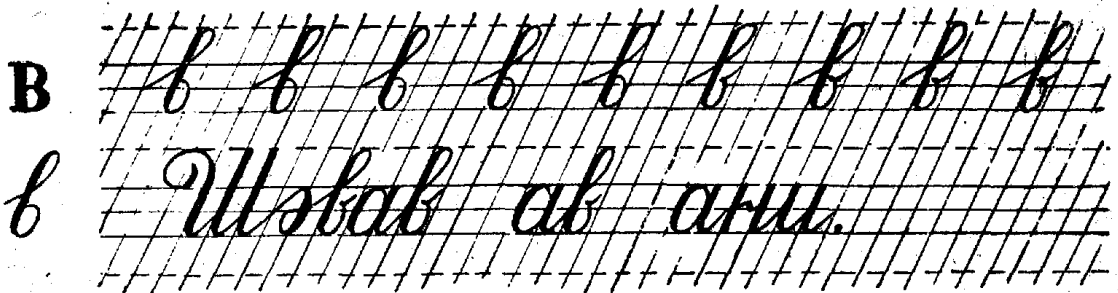 В в в в в в в в в в
в Шәвав ав ани.